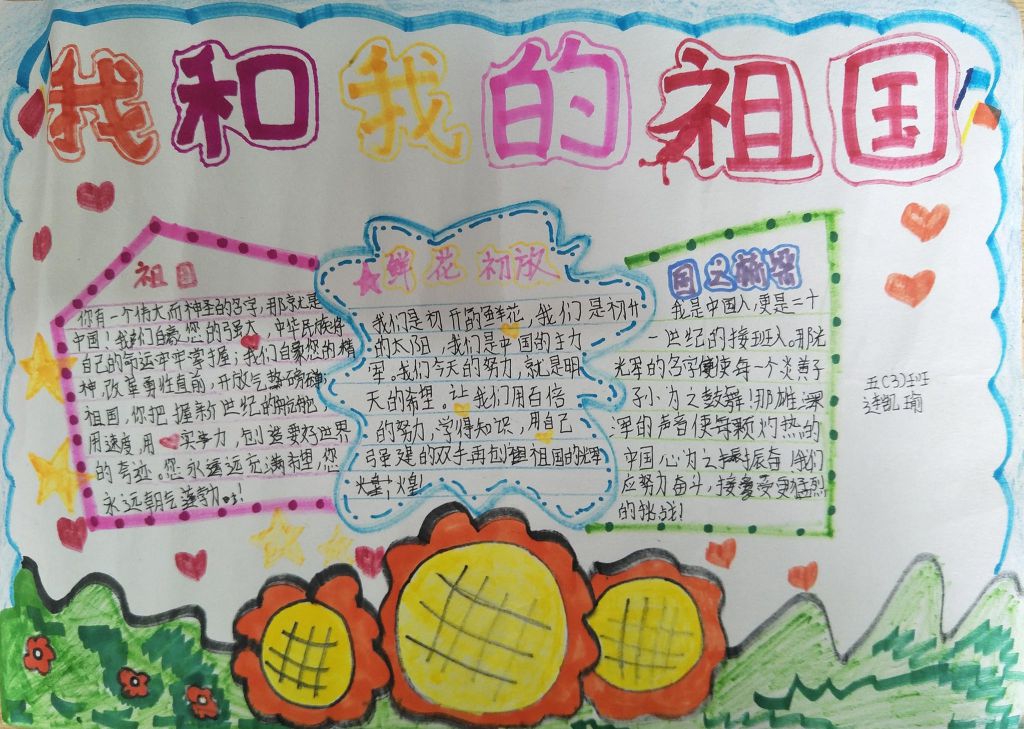 我和我的祖国
祖国
你有一个伟大而神圣的名字,那就是
中国!我们自豪您的强大,中华民族将
自己的命运牢牢掌握;我们自豪您的精
神,改革勇往直前,开放气势磅礴
祖国,你把握新世纪的脉搏,
用速度,用实力,创造要好世界
的奇迹。您永远远充满希望,您
永远朝气蓬勃!
鲜花初放
我们是初开的鲜花,我们是初升
的太阳,我们是中国的主力
军。我们今天的努力,就是明
天的希望。让我们用百倍
的努力,学得知识,用自己
强建的双手再创祖国的光辉
火皇!火皇!
国之
我是中国人,更是二十
一世纪的接班人。那光
光军的名字使每一个炎黄子
子小为之鼓舞!那雄浑
浑的声音使每颗灼热的
中国心为之振奋!我们
应努力奋斗,接受更猛烈
的挑战!
五(3)班